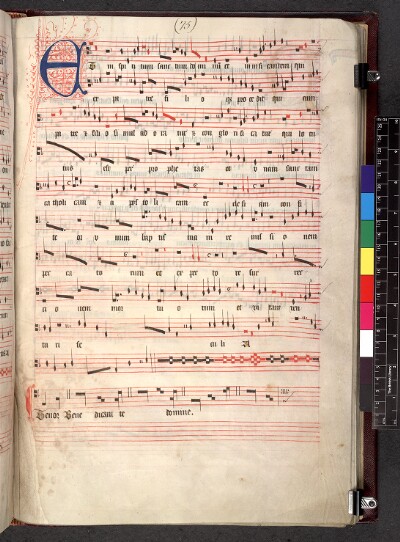 (75)
Et in spi ri tum sanc tum do mi num et vivi fi cantem qui
ex pa tre fi li o que pro ce dit qui cum
pa tre et fi li o si mul ado ra tur et con glo ri fi ca tur qui lo cu
tus est per pro phe tas et v nam sanc tam
ca tholi cam et a posto li cam ec cle si am con fi
te or v num bap tis ma in re mis si o nem
pec ca to rum et ex pec to re sur rec
ci o nem mor tu o rum et vi tam ven
tu ri se cu li A
Tenor Bene dicam te domine.